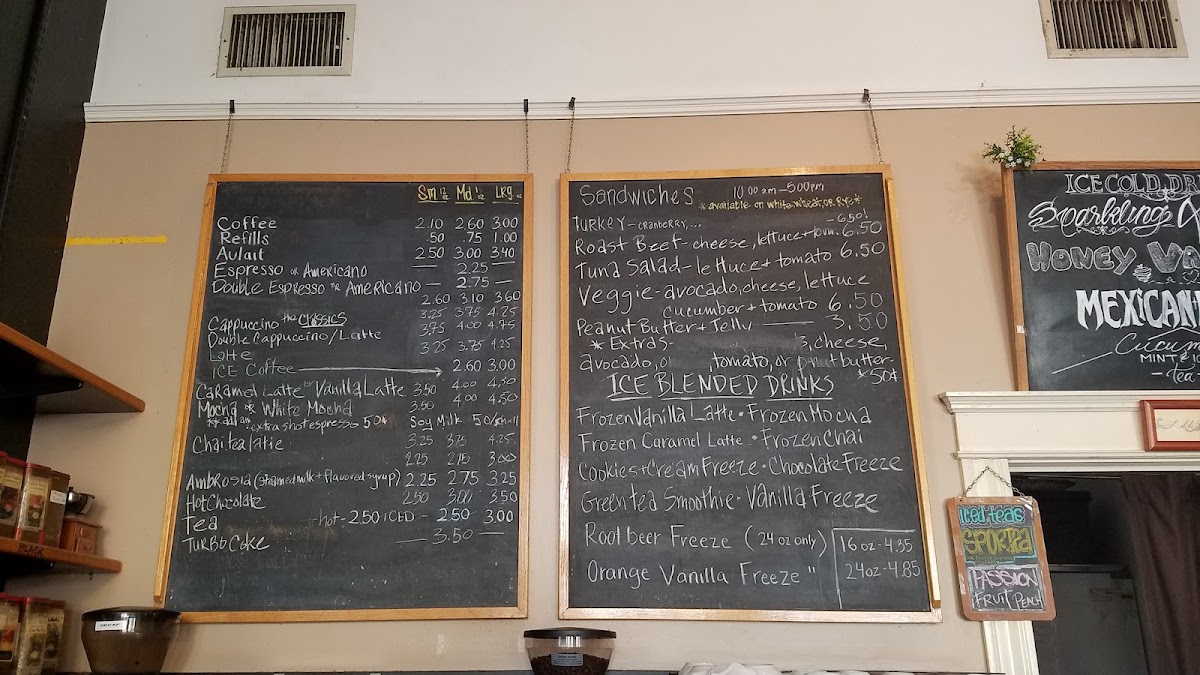 Sm 12 oz Md 16 oz Lrg oz
Coffee 2.10 2.60 3.00
Refills .50 .75 1.00
Aulait 2.50 3.00 3.40
Espresso or Americano — 2.25 —
Double Espresso or Americano — 2.75 —
2.60 3.10 3.60
Cappuccino the Classics 3.25 3.75 4.25
Double Cappuccino/Latte 3.75 4.00 4.75
Latte 3.25 3.75 4.25
ICE Coffee 2.60 3.00
Caramel Latte or Vanilla Latte 3.50 4.00 4.50
Mocha or White Mocha 3.50 4.00 4.50
**add an extra shot espresso 50¢ Soy Milk 50
Chai tea latte 3.25 3.75 4.25
2.25 2.75 3.00
Ambrosia (steamed milk + flavored syrup) 2.25 2.75 3.25
Hot Chocolate 2.50 3.00 3.50
Tea hot - 2.50 ICED - 2.50 3.00
Turbo Coke — 3.50 —
Sandwiches 10:00am-5:00pm
*available on white, wheat, or Rye*
Turkey - cranberry,... - 6.50
Roast Beef - cheese, lettuce + tom. 6.50
Tuna Salad - lettuce + tomato 6.50
Veggie - avocado, cheese, lettuce
cucumber + tomato 6.50
Peanut Butter + Jelly — 3.50
* Extras- cheese,
avocado, tomato, or pnut butter-
*50¢
ICE BLENDED DRINKS
Frozen Vanilla Latte • Frozen Mocha
Frozen Caramel Latte • Frozen Chai
Cookies + Cream Freeze • Chocolate Freeze
Green tea Smoothie • Vanilla Freeze
Root beer Freeze (24 oz only)
Orange Vanilla Freeze "
16 oz - 4.35
24oz - 4.85
ICE COLD DRI
Sparkling
Honey Va
MEXICAN
Cucum
MINT
- tea -
iced teas
SPORTEA
PASSION
FRUIT PEACH
BLACK